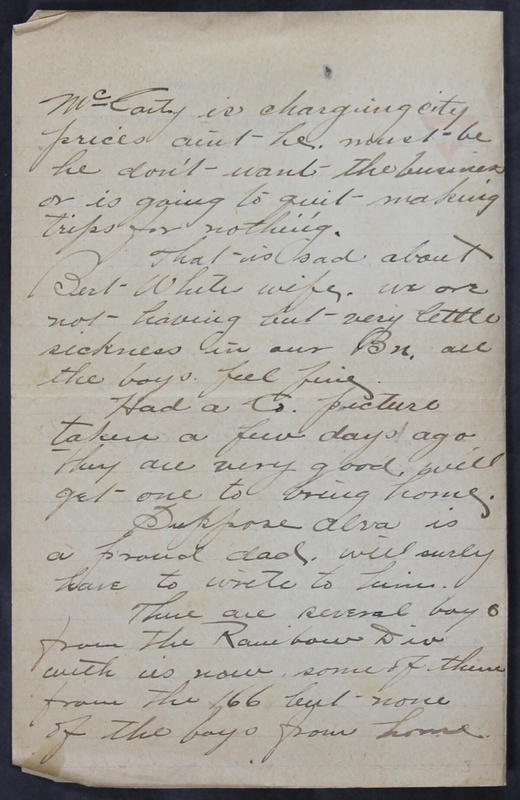 McCarty is charging city
prices aint he. must be
he don't want the business
or is going to quit making
trips for nothing.
That is sad about
Bert White wife. we are
not having but very little
sickness in our Bn. all
the boys feel fine.
Had a Co. picture
taken a few days ago
they are very good. will
get one to bring home.
Suppose Alva is
a proud dad. will surly
have to write to him.
There are several boys
from the Rainbow Div
with us now. some of them
from the 166 but none
of the boys from home.